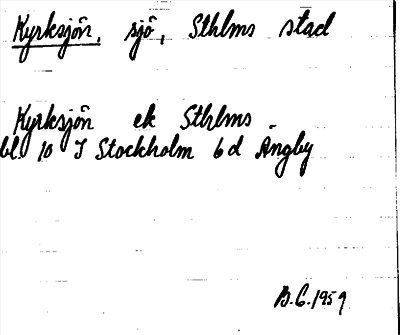 Kyrksjön, sjö, Sthlms stad
Kyrksjön ek Sthlms
bl. 10 I Stockholm 6 d Ängby
B.C. 1959